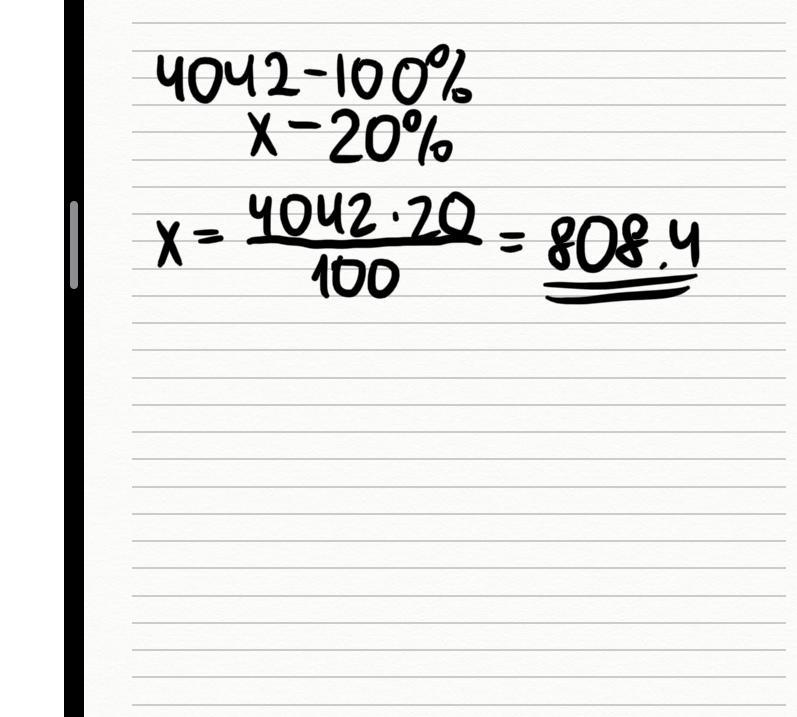 4042-100%
x-20%
x = 4042·20/100 = 808.4